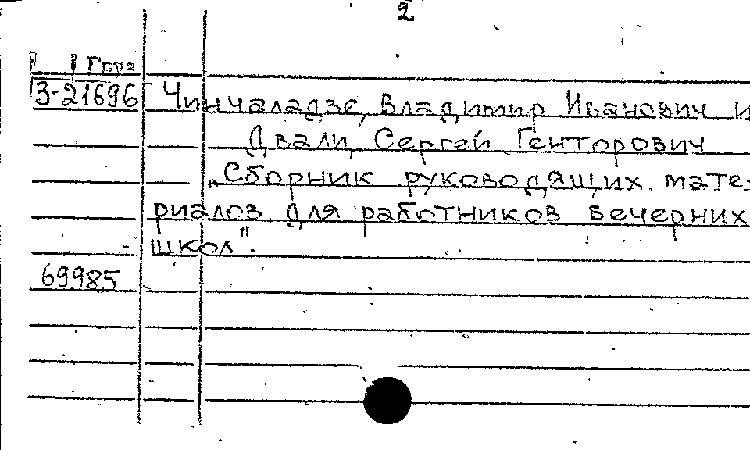 2
Груз
З-21696 Чинчаладзе, Владимир Иванович и
Двали, Сергей Генторович
„Сборник руководящих мате-
риалов для работников вечерних
школ".
69985